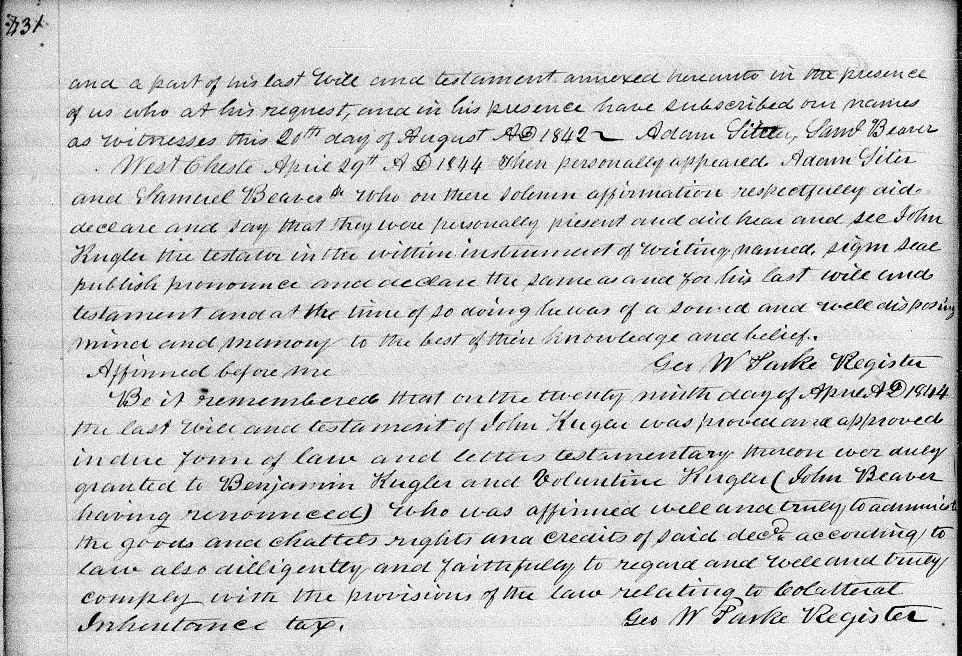 431
and a part of his last will and testament annexed hereunto in the presence
of us who at his request, and in his presence have subscribed our names
as witnesses this 20th day of August AD 1842 ~ Adam Siter, Saml Beaver
West Cheste April 29th A D 1844 then personally appeared Adam Siter
and Samuel Beaver who on there solemn affirmation respectfully did
declare and say that they were personally present and did hear and see John
Kugler the testator in the within instrument of writing named, sign seal
publish pronounce and declare the same as and for his last will and
testament and at the time of so doing he was of a sound and well disposing
mind and memory to the best of their knowledge and belief.
Affirmed before me Geo W Parke Register
Be it remembered that on the twenty ninth day of April AD 1844
the last will and testament of John Kugler was proved and approved
in due form of law and letters testamentary thereon wer duly
granted to Benjamin Kugler and Voluntine Kugler (John Beaver
having renounced) who was affirmed well and truly to administ
the goods and chattels rights and credits of said decd according to
law also dilligently and faithfully to regard and well and truly
comply with the provisions of the law relating to Colatteral
Inheritance tax. Geo W Parke Register